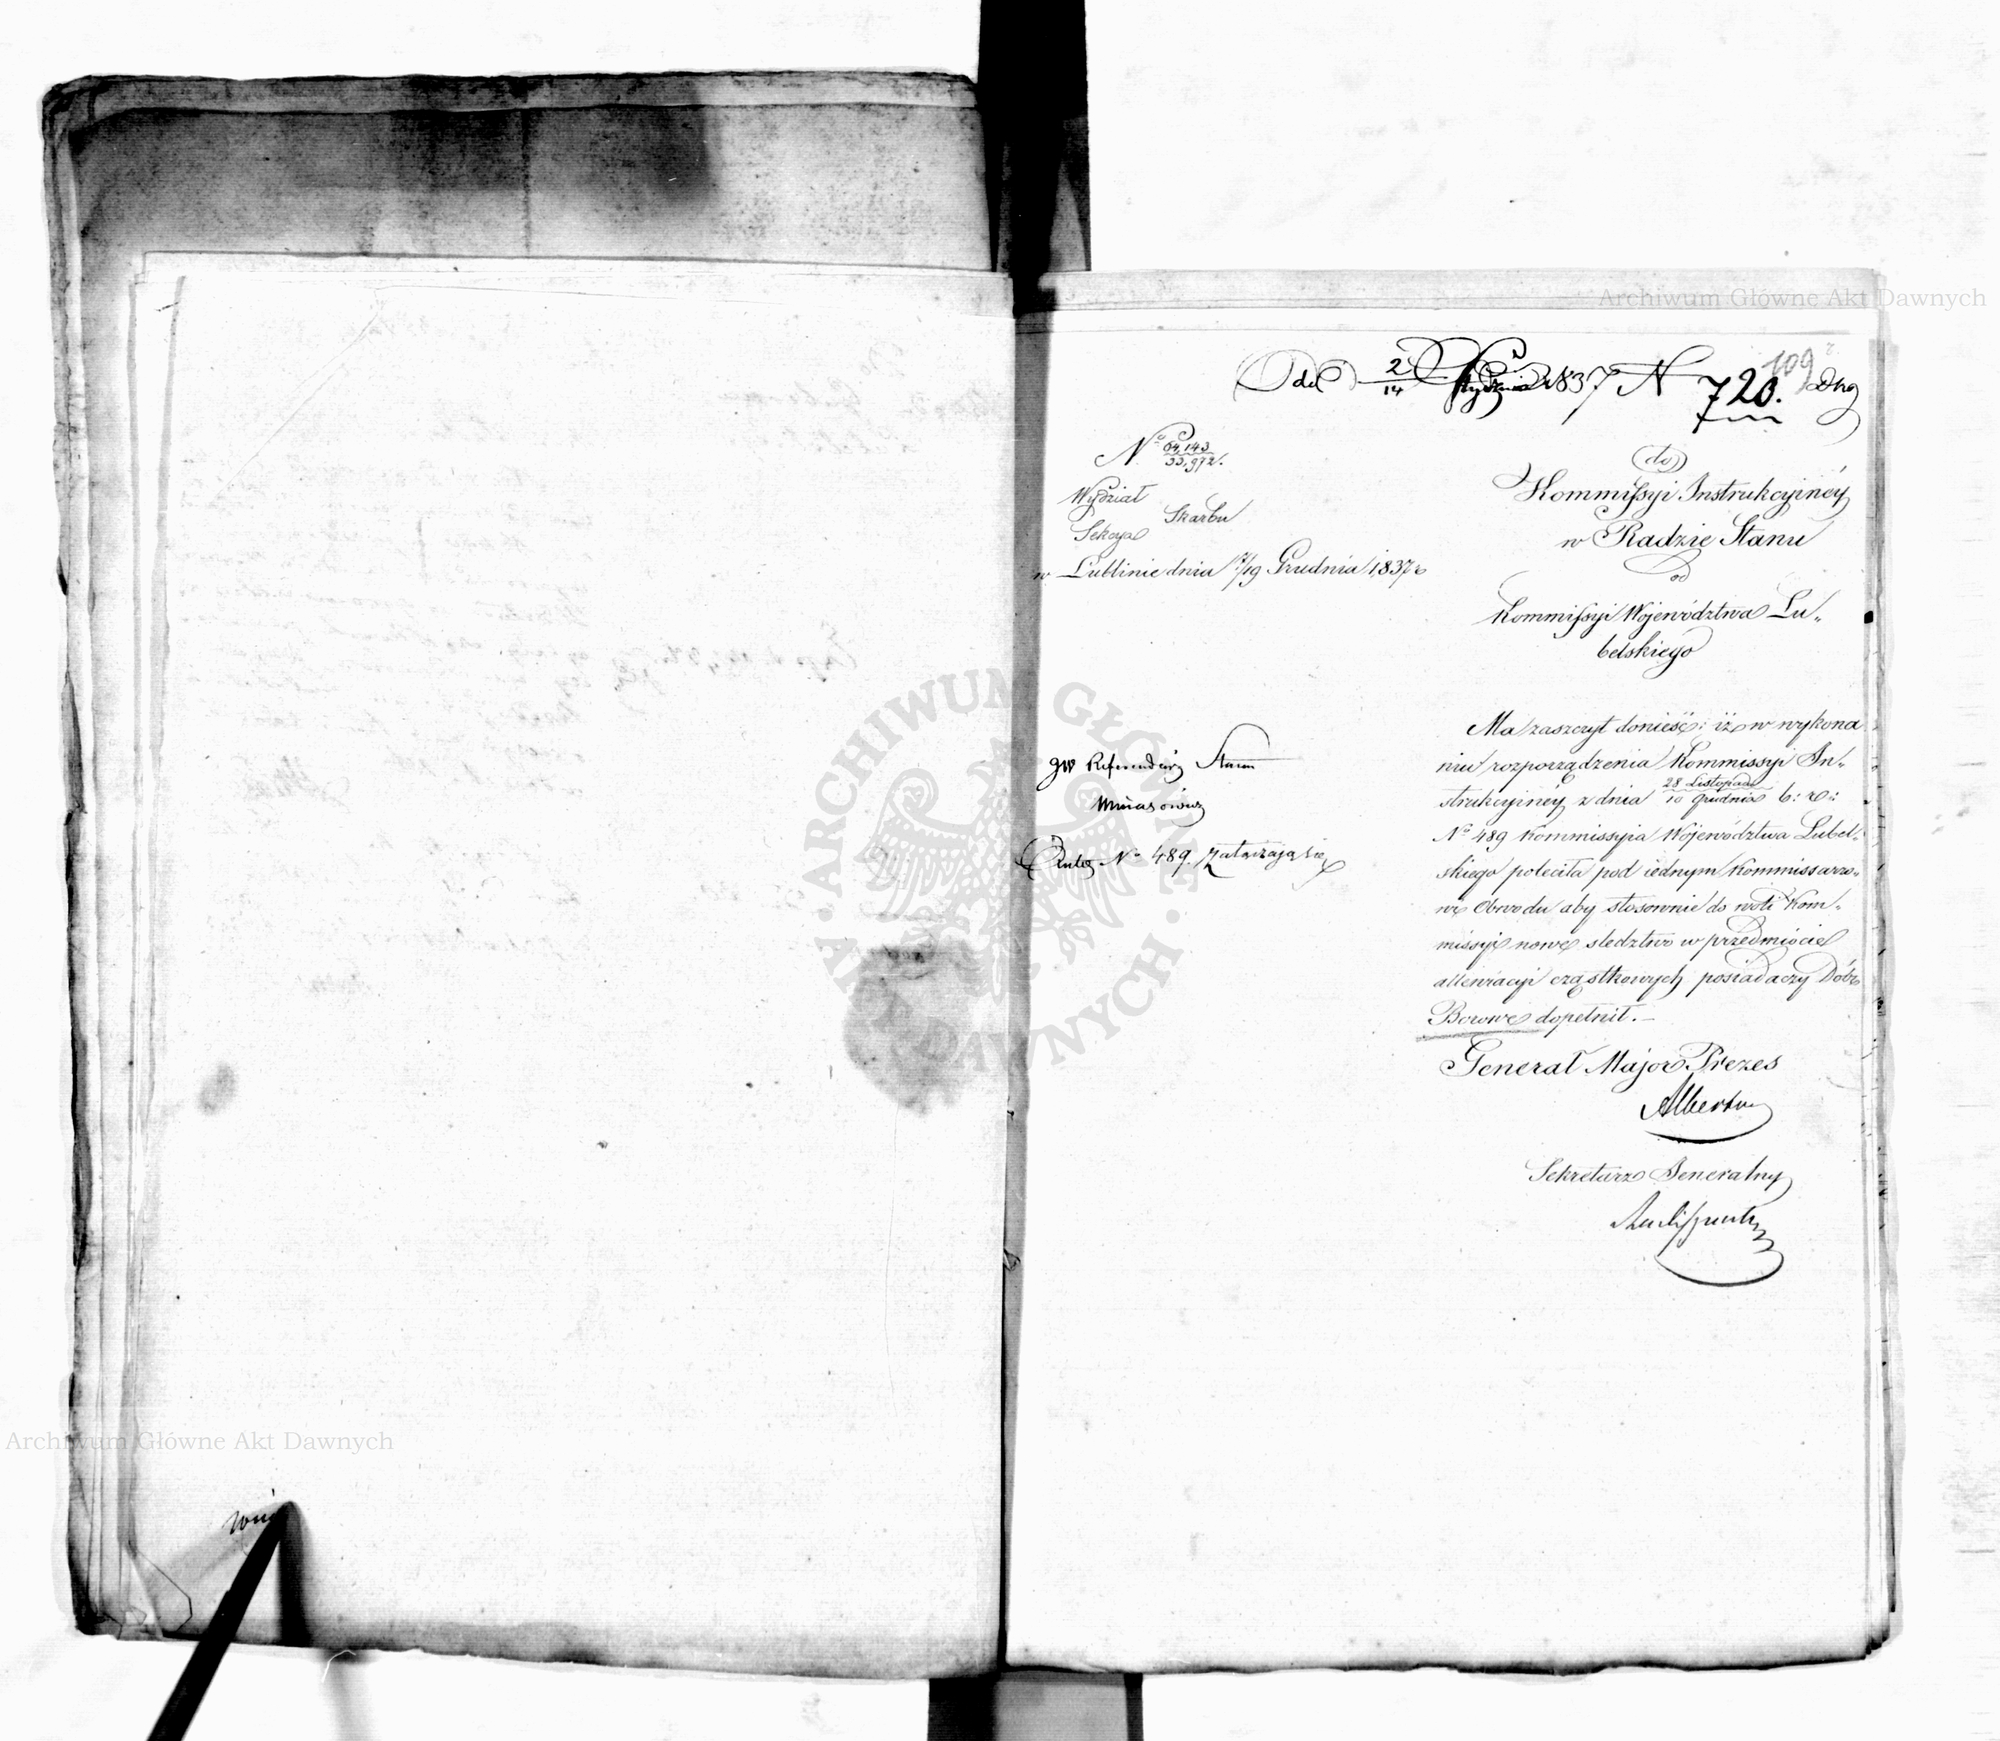 Archiwum Główne Akt Dawnych
109
od d 2/14 Stycznia 1837 N 720.
No 64,143/33,972.
Wydział
Skarbu
Sekcya
w Lublinie dnia 7/19 Grudnia 1837 r
do
Kommissyi Instrukcyinéy
w Radzie Stanu
od
Kommissyi Województwa Lu„
belskiego
Ma zaszczyt donieść: iż w wykona
niu rozporządzenia Kommissyi In„
strukcyinéy z dnia 28 Listopada/10 Grudnia b: r:
No 489 Kommissyia Województwa Lubel„
skiego poleciła pod iednym Kommissarzo„
wi Obwodu aby stosownie do woli Kom„
missyi nowe sledztwo w przedmiocie
allewiacyi cząstkowych posiadaczy Dóbr
Borowe dopełnił.
Generał Major Prezes
Albertow
Sekretarz Jeneralny
JW Referendarz Stanu
Minasowicz
Akta No 489. załączają się
ARCHIWUM GŁÓWNE AKT DAWNYCH
Archiwum Główne Akt Dawnych